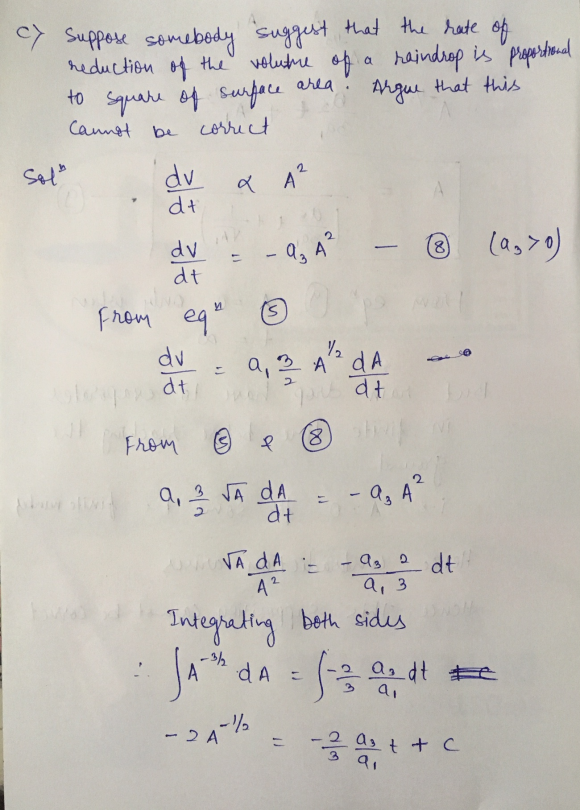 c) Suppose somebody suggest that the rate of
reduction of the volume of a raindrop is proportional
to square of surface area. Argue that this
Cannot be correct
Solⁿ dv/dt ∝ A²
dv/dt = - a₃ A² — ⑧ (a₃ > 0)
From eqⁿ ⑤
dv/dt = a₁ 3/2 A^1/2 dA/dt
From ⑤ & ⑧
a₁ 3/2 √A dA/dt = - a₃ A²
√A dA/A² = - a₃ 2/a₁ 3 dt
Integrating both sides
∴ ∫ A^-3/2 dA = ∫ -2/3 a₃/a₁ dt
- 2 A^-1/2 = -2/3 a₃/a₁ t + c